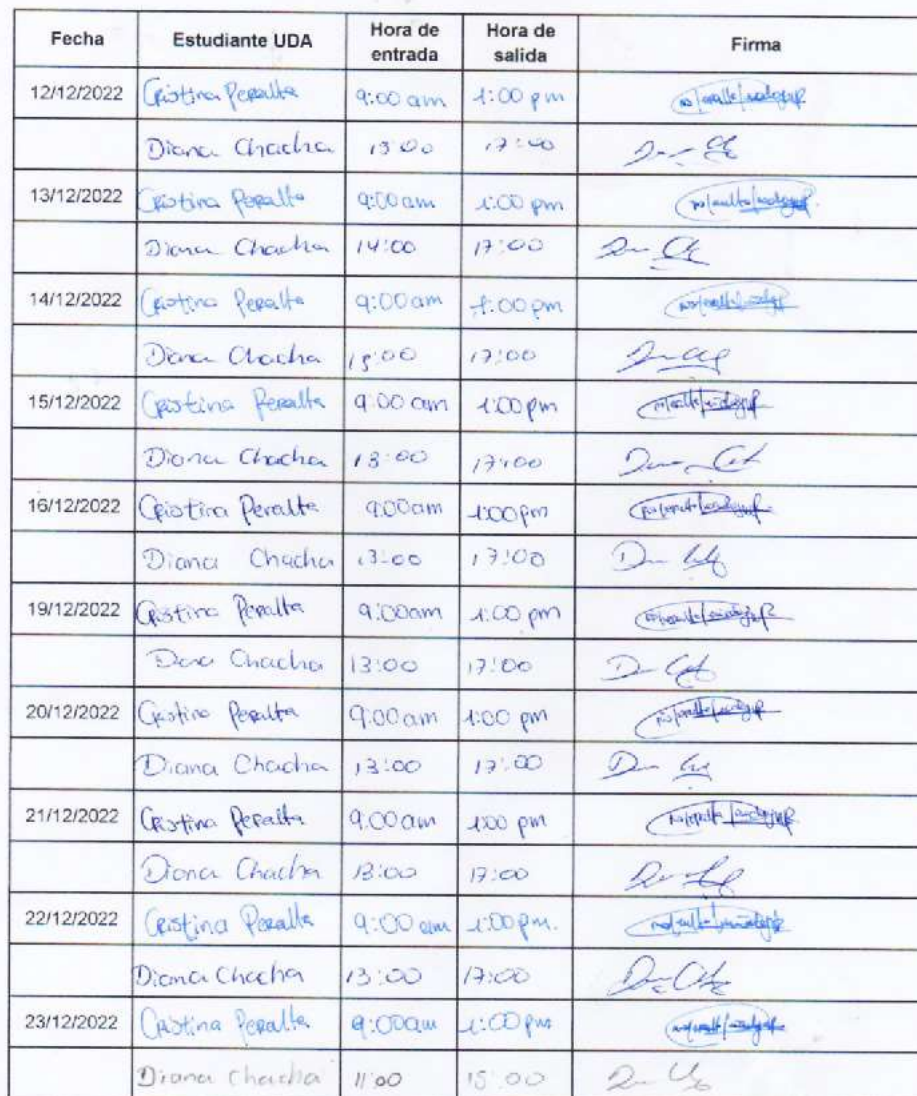 Fecha Estudiante UDA Hora de entrada Hora de salida Firma
12/12/2022 Cristina Peralta 9:00 am 1:00 pm
Diana Chacha 13:00 17:00
13/12/2022 Cristina Peralta 9:00 am 1:00 pm
Diana Chacha 14:00 17:00
14/12/2022 Cristina Peralta 9:00 am 1:00 pm
Diana Chacha 17:00
15/12/2022 Cristina Peralta 9:00 am 1:00 pm
Diana Chacha 13:00 17:00
16/12/2022 Cristina Peralta 9:00 am 1:00 pm
Diana Chacha 13:00 17:00
19/12/2022 Cristina Peralta 9:00 am 1:00 pm
Diana Chacha 13:00 17:00
20/12/2022 Cristina Peralta 9:00 am 1:00 pm
Diana Chacha 13:00 17:00
21/12/2022 Cristina Peralta 9:00 am 1:00 pm
Diana Chacha 13:00 17:00
22/12/2022 Cristina Peralta 9:00 am 1:00 pm.
Diana Chacha 13:00 17:00
23/12/2022 Cristina Peralta 9:00 am 1:00 pm
Diana Chacha 11:00 15:00